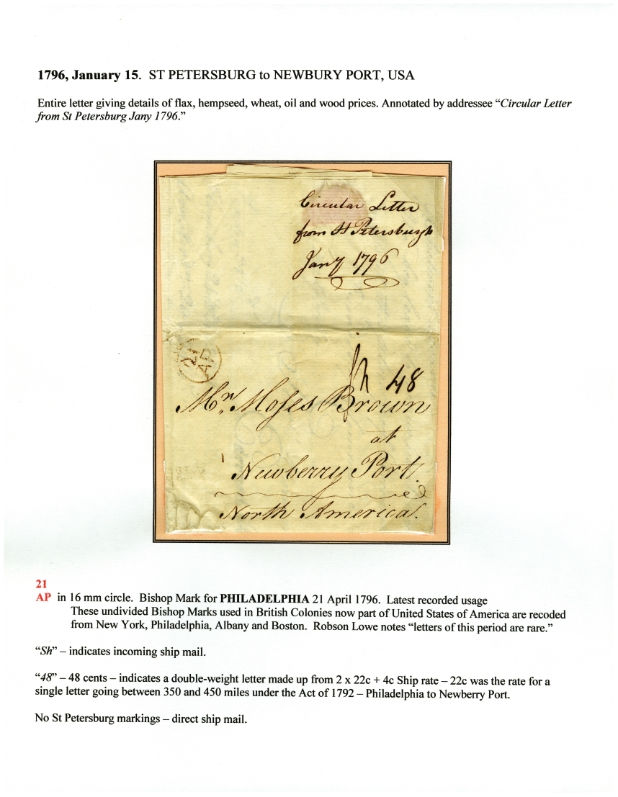 1796, January 15. ST PETERSBURG to NEWBURY PORT, USA
Entire letter giving details of flax, hempseed, wheat, oil and wood prices. Annotated by addressee “Circular Letter
from St Petersburg Jany 1796.”
Circular Letter
from St Petersburgh
Jany 1796
21
AP
Sh 48
Mr. Moses Brown
at
Newberry Port.
North America.
21
AP in 16 mm circle. Bishop Mark for PHILADELPHIA 21 April 1796. Latest recorded usage
These undivided Bishop Marks used in British Colonies now part of United States of America are recoded
from New York, Philadelphia, Albany and Boston. Robson Lowe notes “letters of this period are rare.”
“Sh” – indicates incoming ship mail.
“48” – 48 cents – indicates a double-weight letter made up from 2 x 22c + 4c Ship rate – 22c was the rate for a
single letter going between 350 and 450 miles under the Act of 1792 – Philadelphia to Newberry Port.
No St Petersburg markings – direct ship mail.